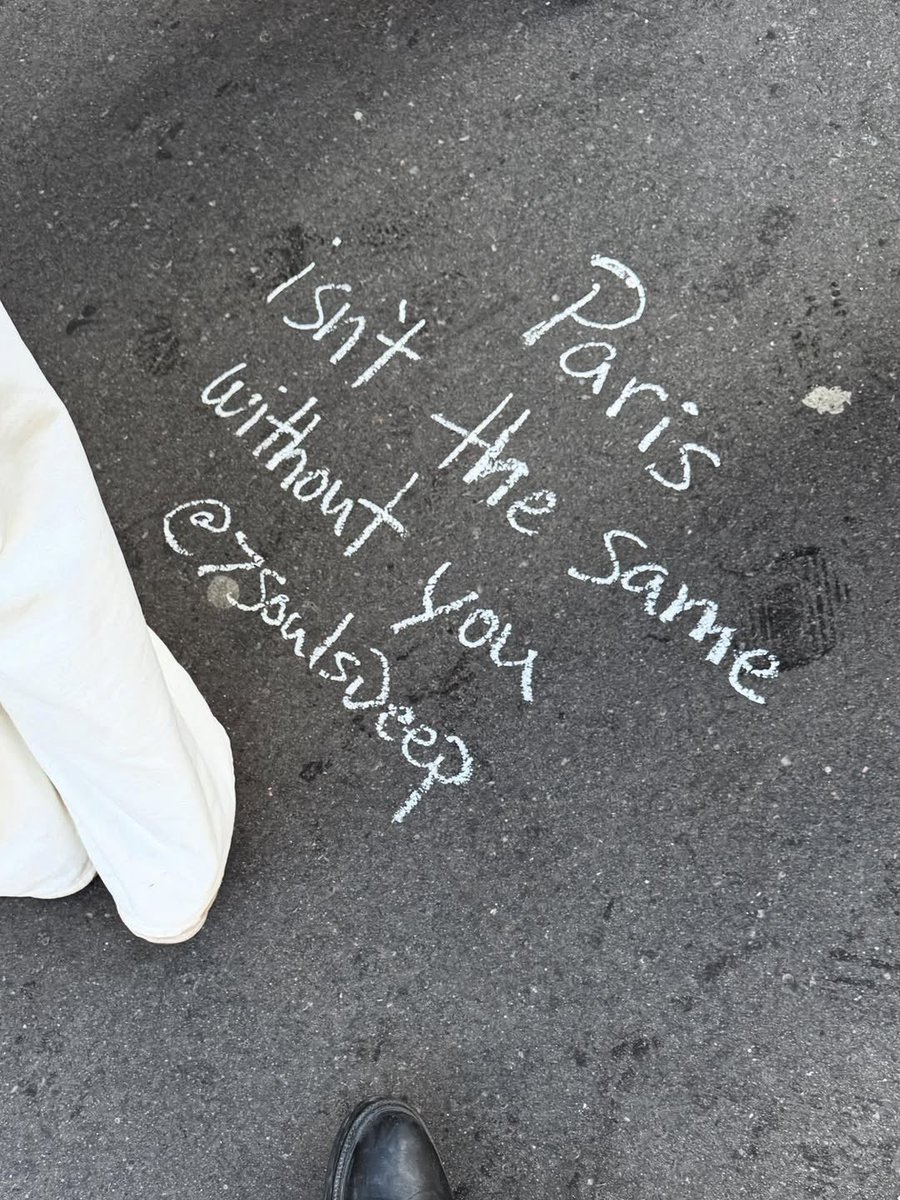 Paris
isn't the same
without you
@7soulsDeep